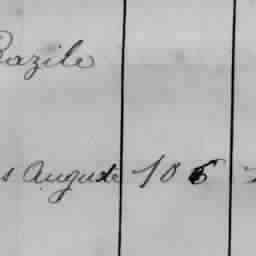 Bazile
s Auguste 106